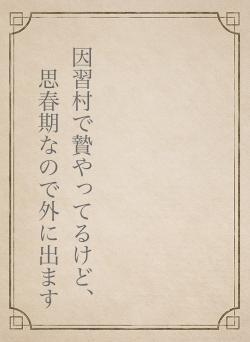 因習村で贄やってるけど、
思春期なので外に出ます